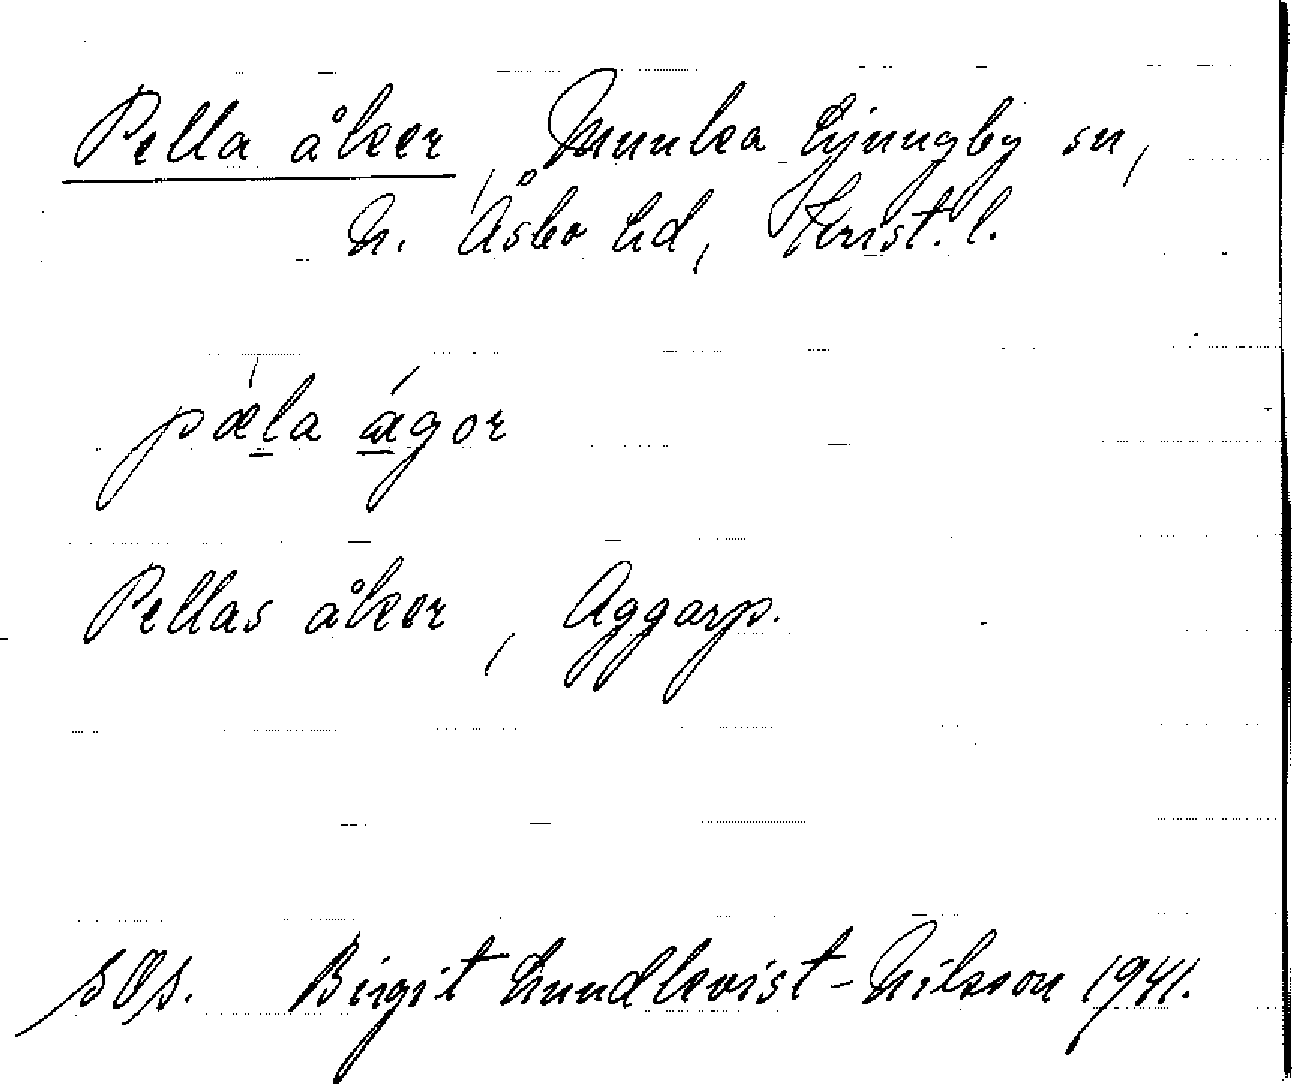 Pella åker, Munka Ljungby sn,
N. Åsbo hd, Krist. l.
pæla ågor
Pellas åker, Aggarp.
Birgit Lundkvist-Nilsson 1941.